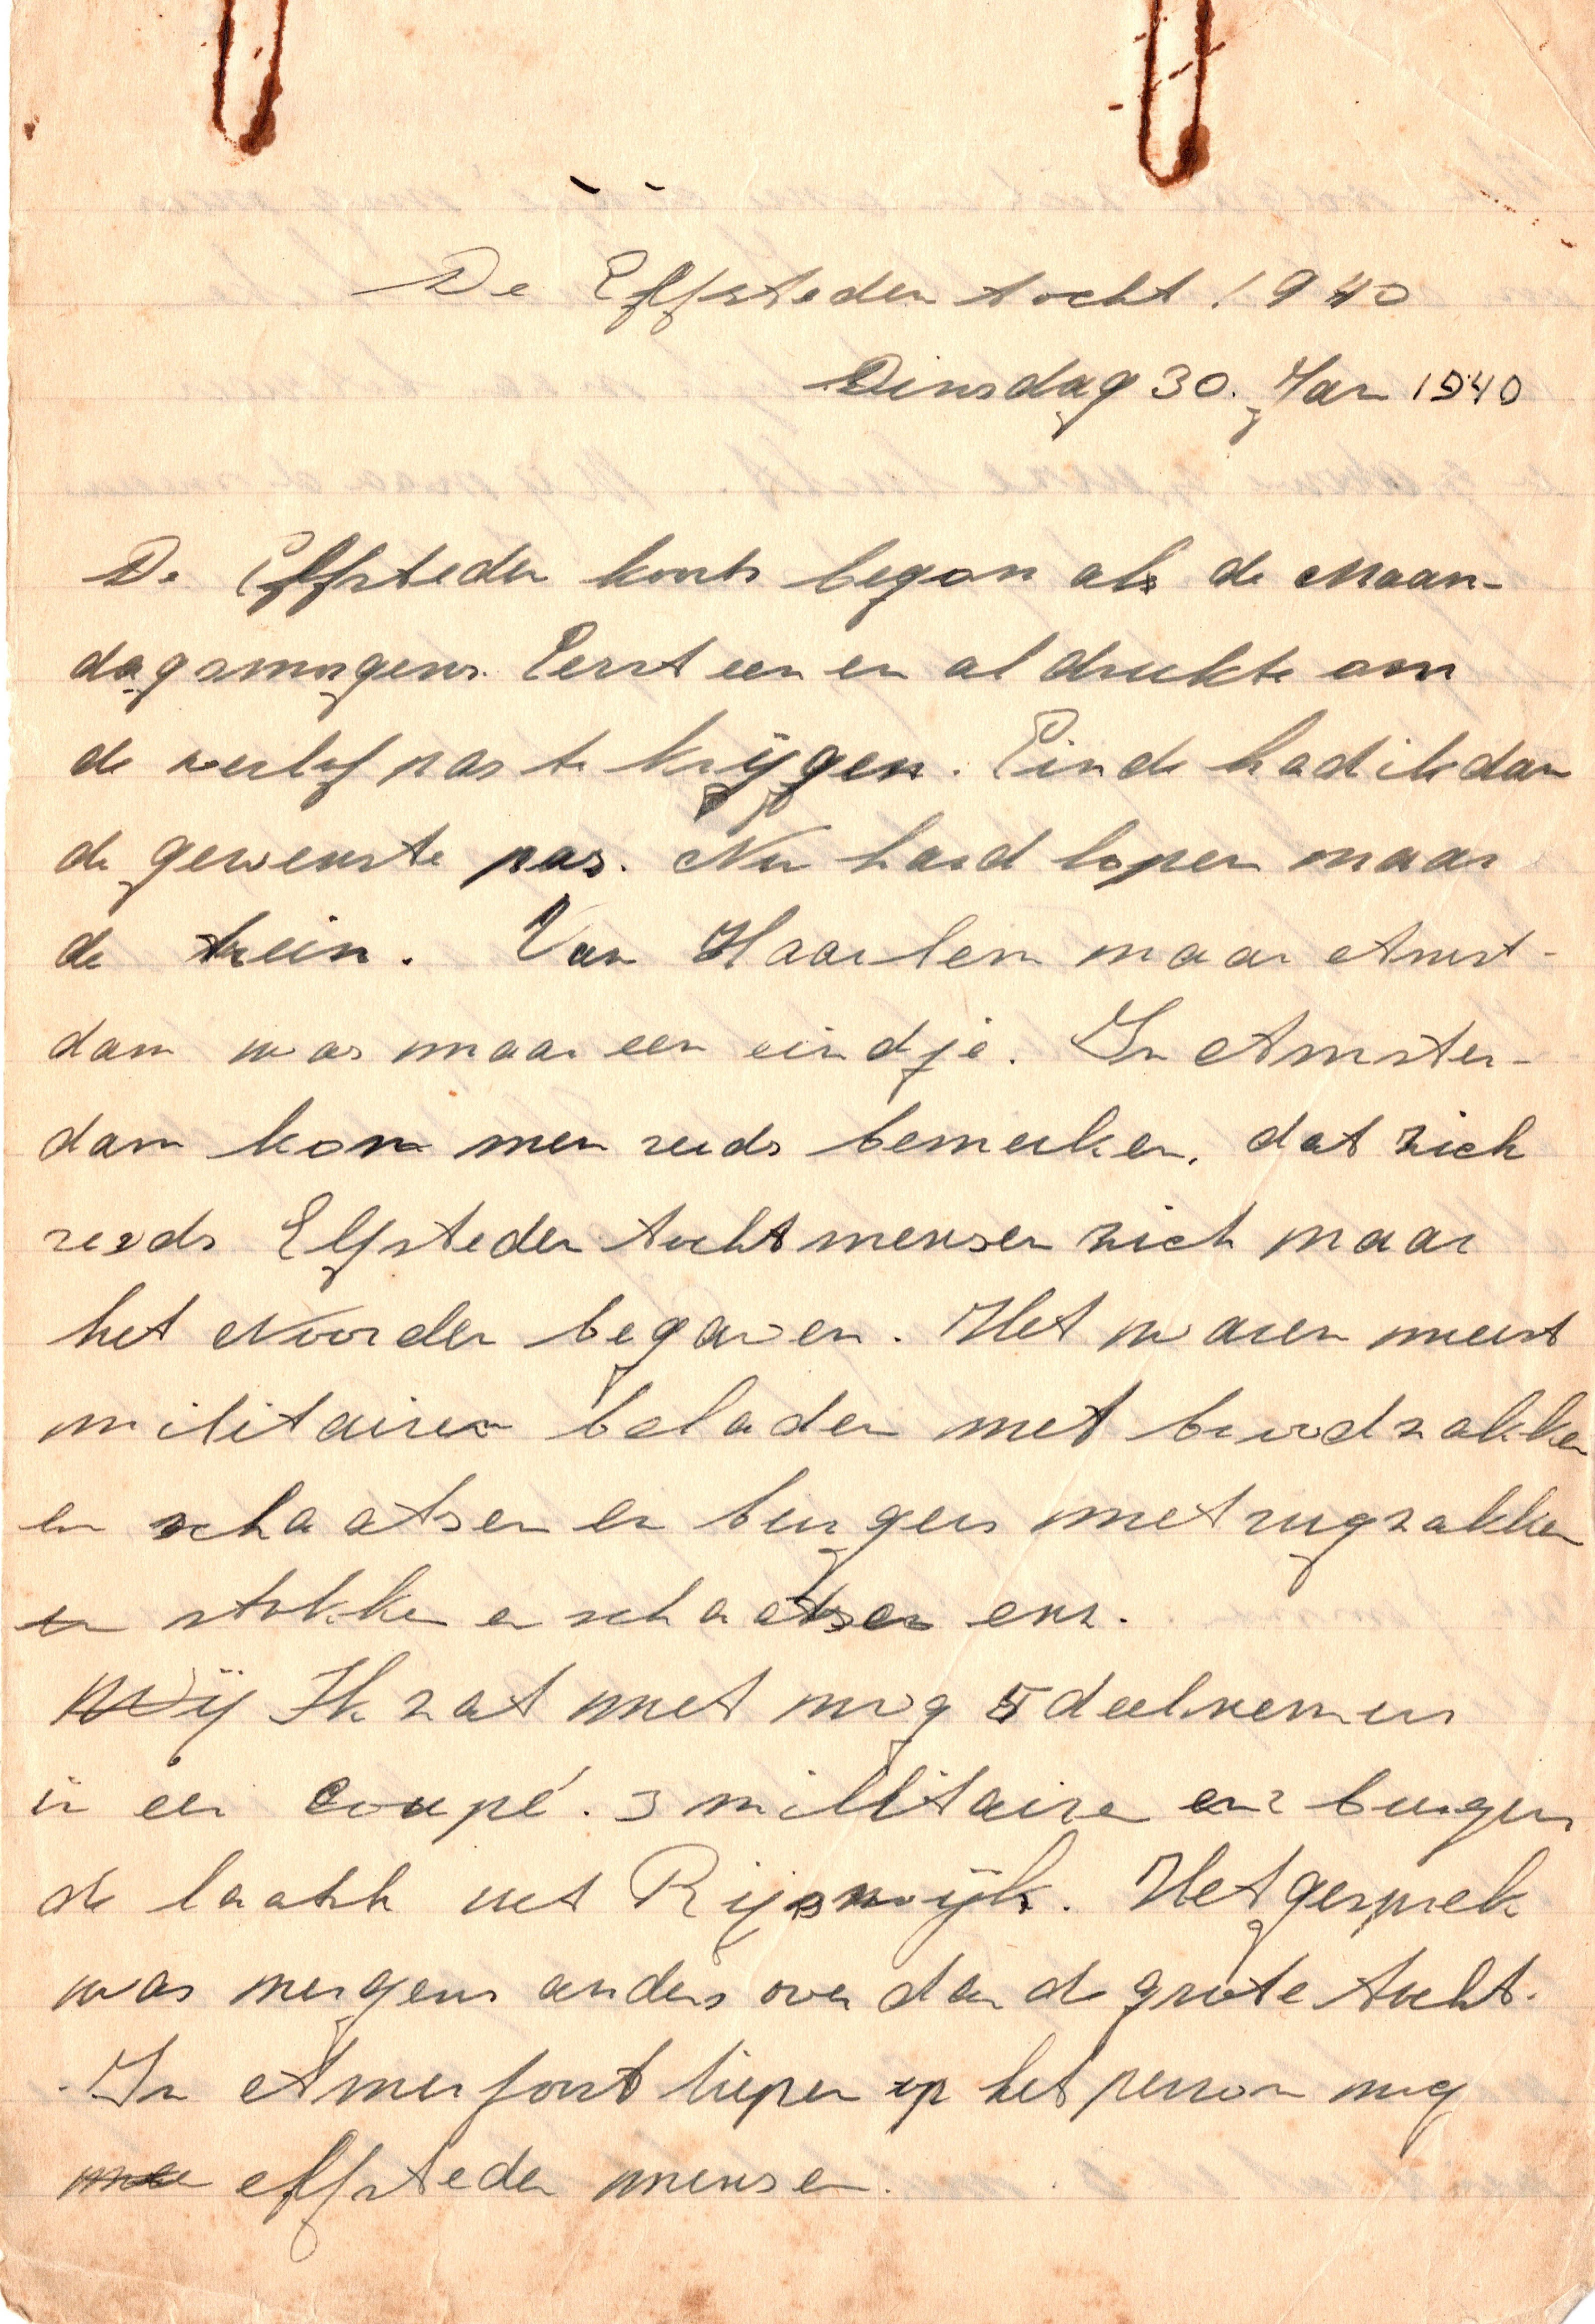 De Elfsteden tocht 1940
Dinsdag 30. Jan 1940
De Elfsteden koorts begon als de Maan-
dagsmorgens. Eerst een en al drukte om
de verlof pas te krijgen. Einde had ik dan
de gewenste pas. Nu hard lopen naar
de trein. Van Haarlem naar Amst-
dam was maar een eindje. In Amster-
dam kon men reeds bemerken, dat zich
reeds Elfsteden tocht mensen zich naar
het Noorden begaven. Het waren meest
militairen beladen met broodzakken
en schaatsen en burgers met rugzakken
en stokken en schaatsen enz.
Wij Ik zat met nog 5 deelnemers
in een coupé. 3 millitaire en 2 burgers
de laatste uit Rijswijk. Het gesprek
was nergens anders over dan de grote tocht.
In Amersfoort liepen op het perron nog
elfsteden mensen.